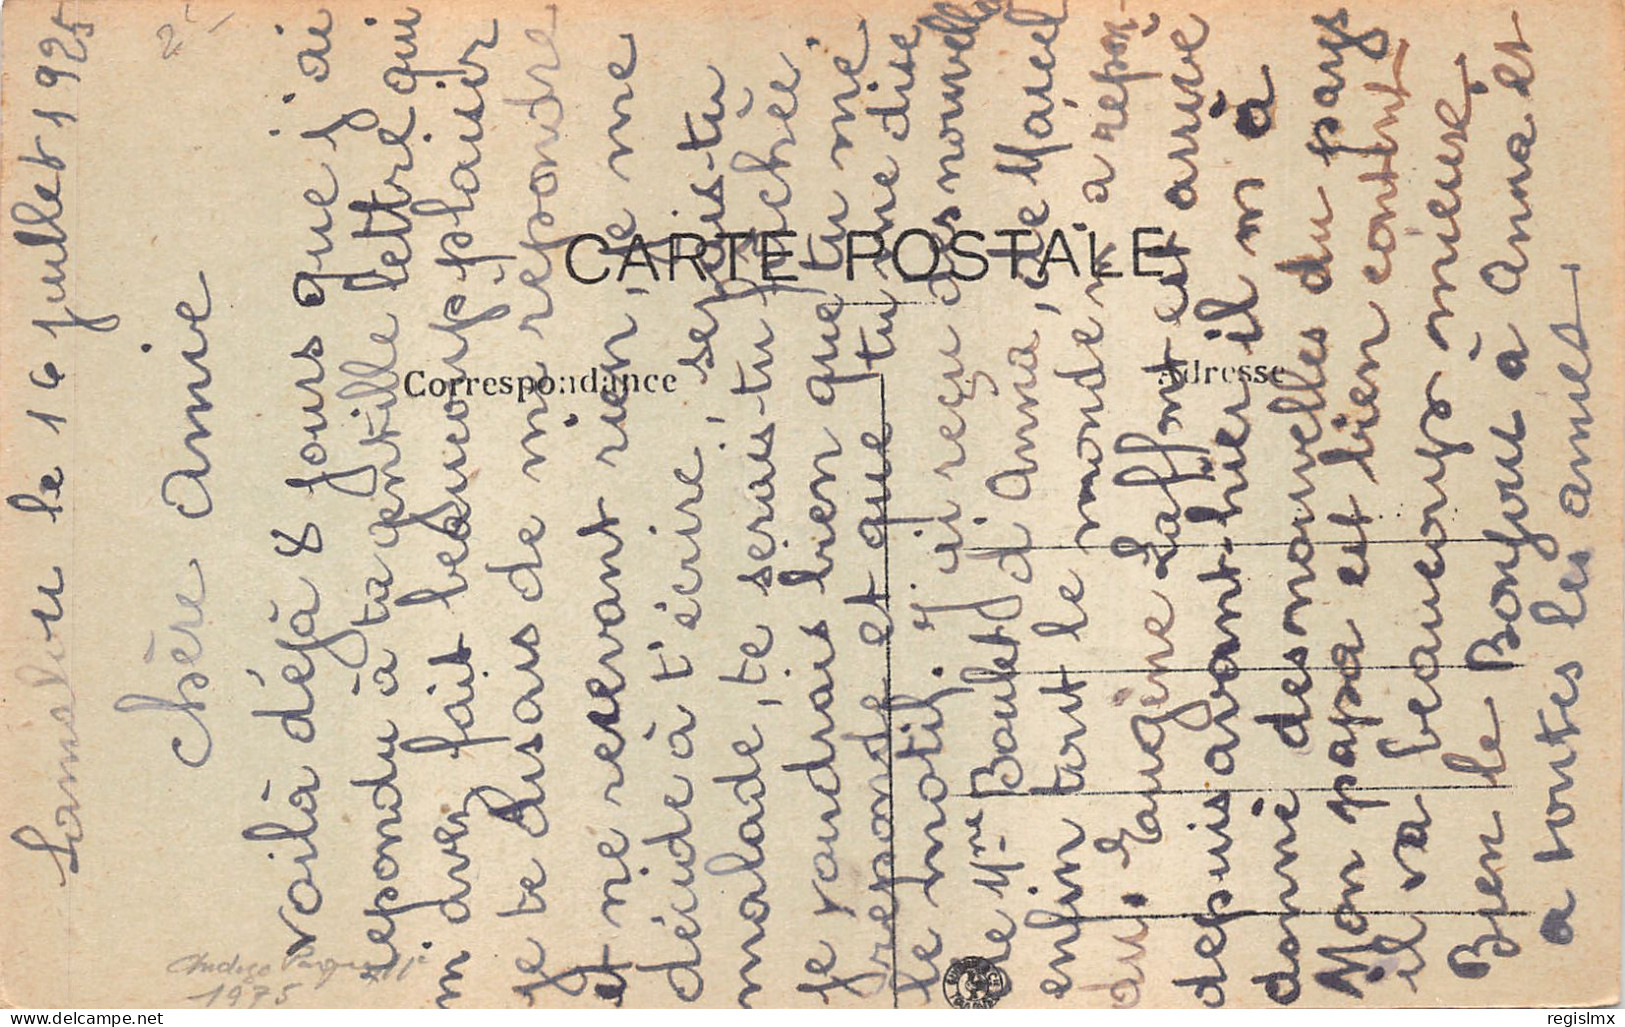 le 16 juillet 1925
Chère Amie
Voilà déjà 8 jours que j'ai
repondu à ta gentille lettre qui
m'avez fait beaucoup plaisir
je te disais de me repondre
et ne recevant rien, je me
décide à t'écrire, serais-tu
malade, te serais-tu fachée,
je voudrais bien que tu me
reponde et que tu me dise
le motif. J'ai reçu des nouvelles
de Mme Boulet d'Anna, de Marcel
enfin tout le monde m'a repon-
du, Eugène Laffont est arrivé
depuis avant-hier il m'a
donné des nouvelles du pays
Mon papa est bien content
il va beaucoup mieux.
Bien le Bonjour à Anna et
a toutes les amies.
CARTE POSTALE
Correspondance
Adresse
1975
delcampe.net
regislmx